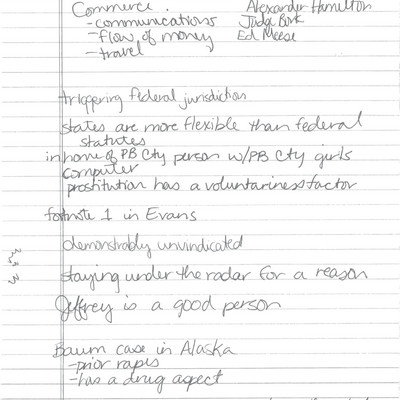 Commerce. Alexander Hamilton
-communications Judge Bork
-flow of money Ed Meese
-travel
triggering federal jurisdiction
states are more flexible than federal
statutes
in home of PB Cty person w/PB Cty girls
computer
prostitution has a voluntariness factor
footnote 1 in Evans
demonstrably unvindicated
staying under the radar for a reason
Jeffrey is a good person
Baum case in Alaska
-prior rapes
-has a drug aspect